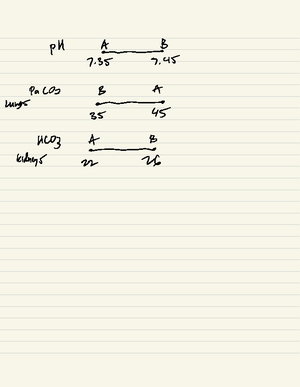 pH A B
7.35 7.45
PaCO2 B A
lungs 35 45
HCO3 A B
kidneys 22 26